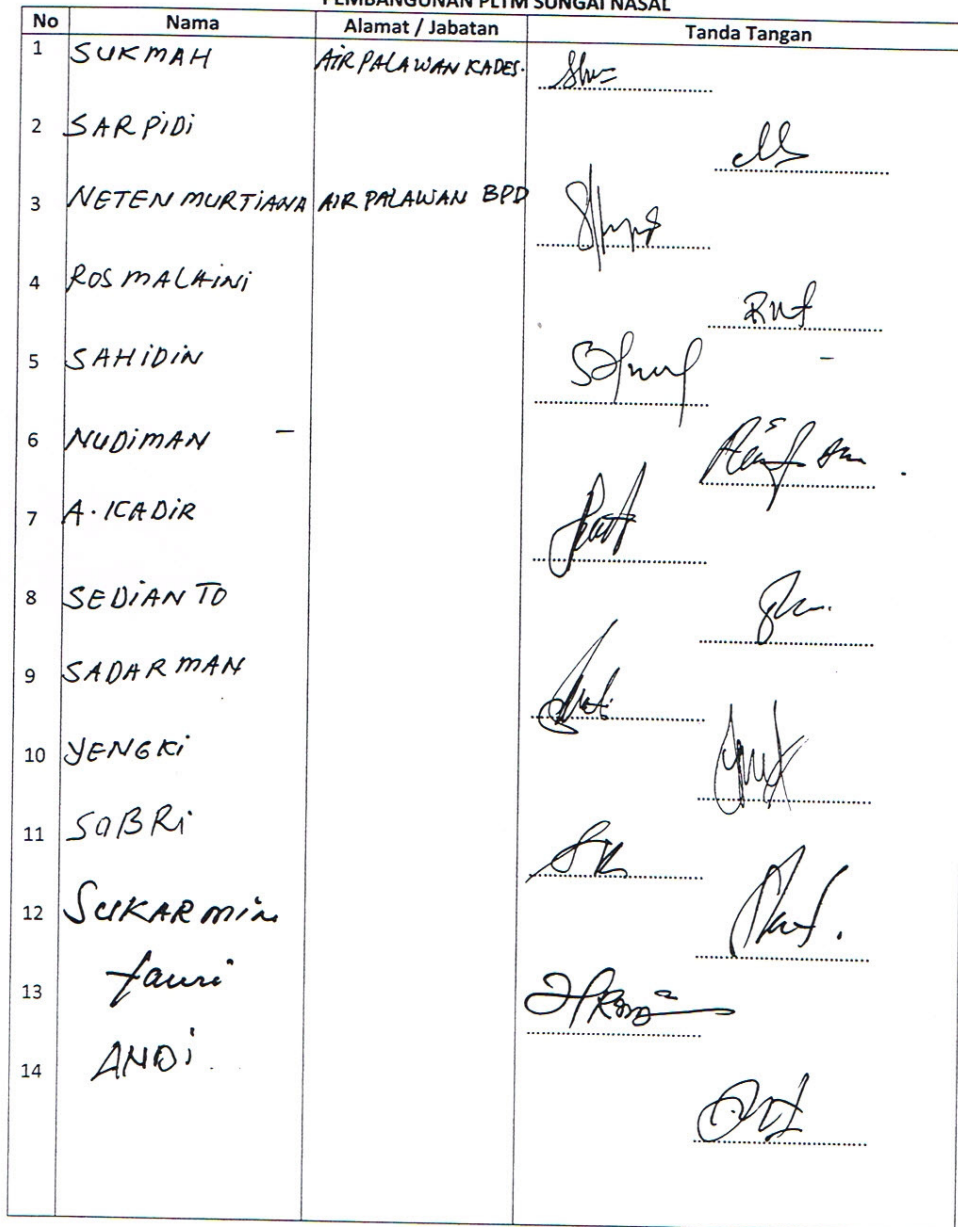 PEMBANGUNAN PLTM SUNGAI NASAL
No Nama Alamat / Jabatan Tanda Tangan
1 SUKMAH AIR PALAWAN KADES.
2 SARPIDI
3 NETEN MURTIANA AIR PALAWAN BPD
4 ROSMALAINI
5 SAHIDIN
6 NUDIMAN –
7 A. KADIR
8 SEDIANTO
9 SADARMAN
10 YENGKI
11 SOBRI
12 SUKARMIN
13 fauri
14 ANDI